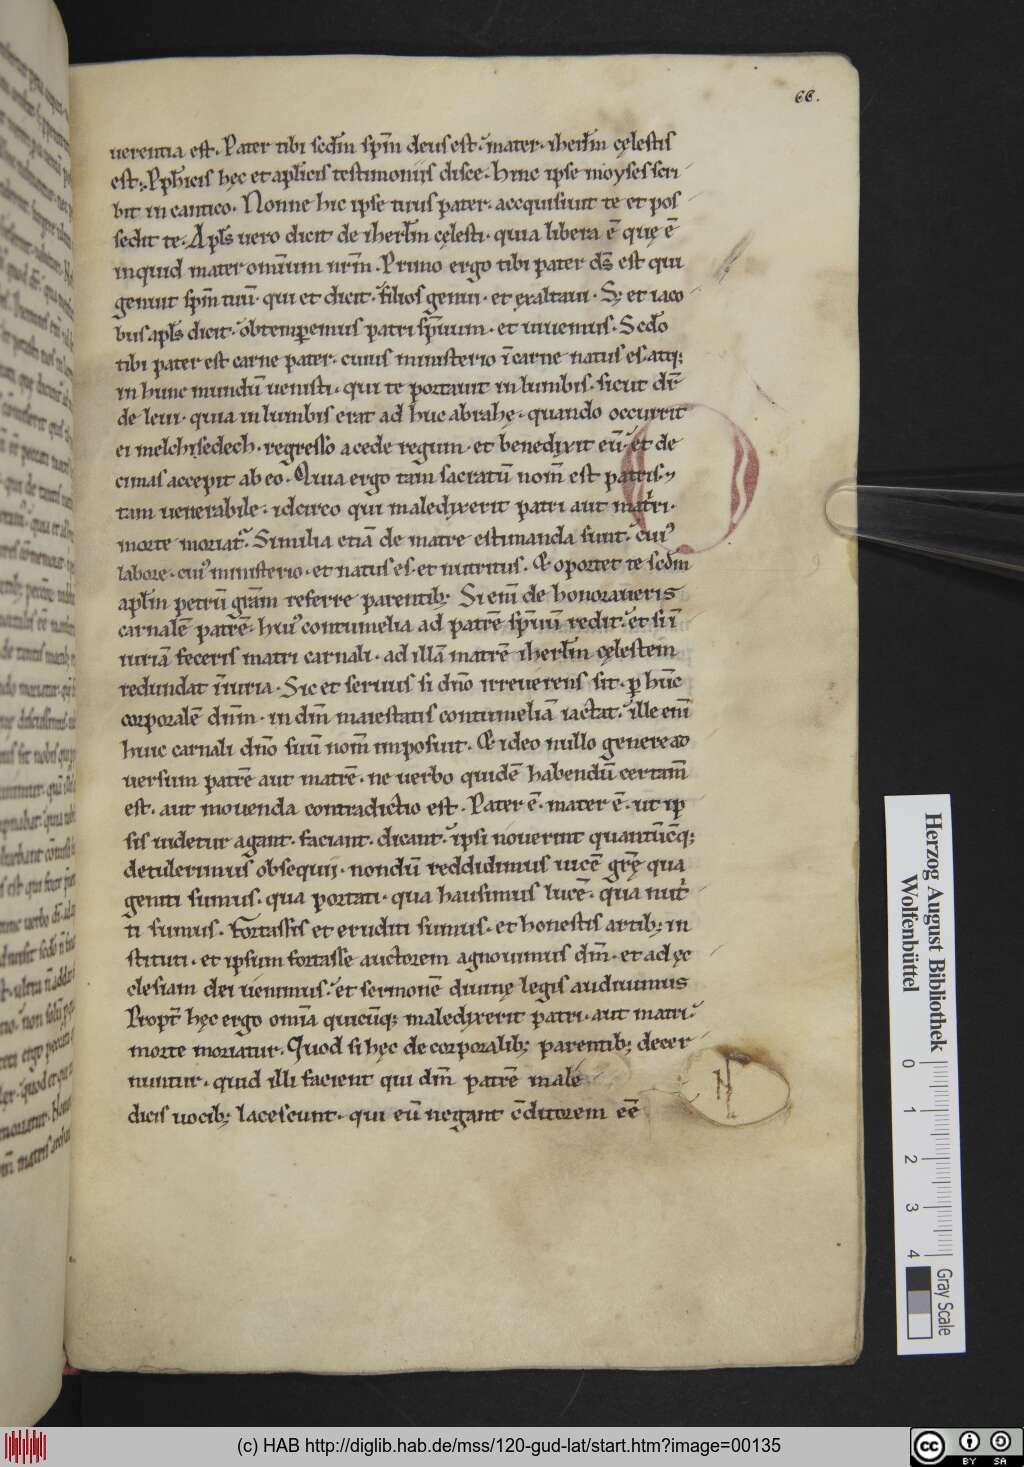 66.
uerentia est. Pater tibi scd̄m sp̄m deus est. mater. iherl̄m cęlestis
est. P̱ph̄icis hęc et apl̄icis testimoniis disce. Hinc ipse moyses scri
bit in cantico. Nonne hic ipse tuus pater. accquisiuit te et pos
sedit te. Apl̄s uero dicit de iherl̄m cęlesti. quia libera ē quę ē
inquid mater omīum nr̄m. Primo ergo tibi pater ds̄ est qui
genuit sp̄m tuū. qui et dicit. filios genui. et exaltaui. S; et iaco
bus apl̄s dicit. obtemꝑemus patri sp̄iuum. et uiuemus. Scd̄o
tibi pater est carne pater. cuius ministerio ī carne natus es. atq;
in hunc mundū uenisti. qui te portauit in lumbis. sicut dr̄
de leui. quia in lumbis erat ad huc abrahę. quando occurrit
ei melchisedech. regresso a cede regum. et benedixit eū. et de
cimas accepit ab eo. Qua ergo tam sacratū nom̄ est patris.
tam uenerabile. idcirco qui maledixerit patri aut matri.
morte moriat᷑. Similia etiā de matre estimanda sunt. cui᷒
labore. cui᷒ ministerio. et natus es. et nutritus. & oportet te scd̄m
apl̄m petrū gr̄am referre parentib; Si eni᷑ de honoraueris
carnalē patrē. hui᷒ contumelia ad patrē sp̄iuū redit. et si ī
iuriā feceris matri carnali. ad illā matrē iherl̄m cęlestem
redundat īiuria. Sic et seruus si dn̄o irreuerens sit. ꝑ hūc
corporalē dn̄m. in dn̄m maiestatis contumeliā iactat. ille enī
huic carnali dn̄o suū nom̄ imposuit. & ideo nullo genere ad
uersum patrē aut matrē. ne uerbo quidē habendū certam̄
est. aut mouenda contradictio est. Pater ē. mater ē. ut ip
sis uidetur agant. faciant. dicant. ipsi nouerint quantūcq;
detulerimus obsequii. nondū reddidimus uicē grę̄ qua
geniti sumus. qua portati. qua hausimus lucē. qua nut᷑
ti sumus. Fortassis et eruditi sumus. et honestis artib; in
stituti. et ipsum fortasse auctorem agnouimus dn̄m. et ad ęc
clesiam dei uenimus. et sermonē diuinę legis audiuimus
Propt᷑ hęc ergo omīa quicūq; maledixerit patri. aut matri.
morte moriatur. Quod si hęc de corporalib; parentib; decer
nuntur. quid illi facient qui dn̄m patrē male
dicis uocib; lacescunt. qui eū negant c̄ditorem eē
Herzog August Bibliothek
Wolfenbüttel
0 1 2 3 4
Gray Scale
(c) HAB http://diglib.hab.de/mss/120-gud-lat/start.htm?image=00135
cc BY SA